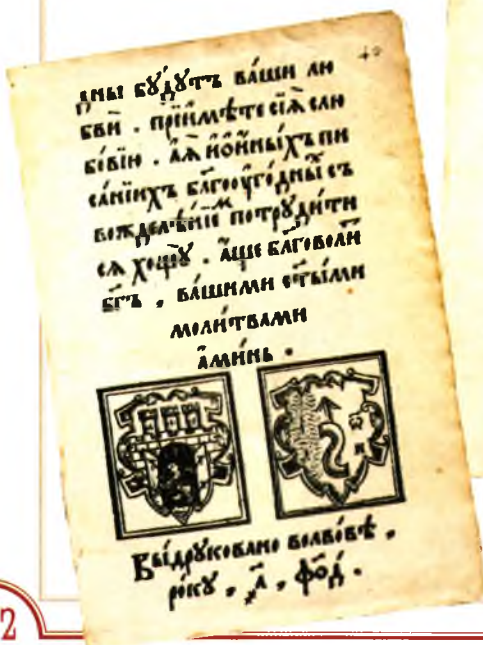 40
дны бꙋ́дꙋтъ ва́ши лю
бви̂ . прїими́ѣте сїѧ̀ слю
бо́вїю . а҆ѧ̀ иѡ҆и́ныхъ пи
са́нїихъ бл҃гооуго́дныхъ съ
вождєлѣ́нїємъ потрꙋди́ти
сѧ хощꙋ̀ . а҆́щє бл҃говоли́тъ
бг҃ъ , ва́шими ст҃ы́ми
моли́твами
а҆ми́нь .
Вы́дрꙋковано волво́вѣ ,
ро́кꙋ , ҂а҃ , фо҃д .
2